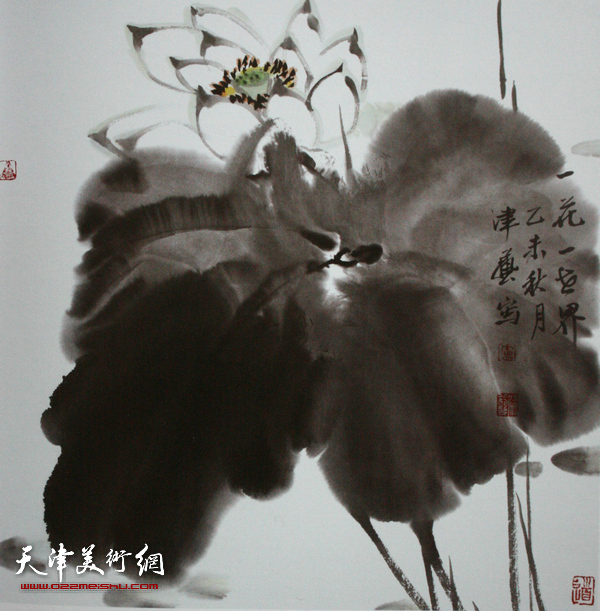 一花一世界
乙未秋月
津藝寫
天津美術網
www.022meishu.com